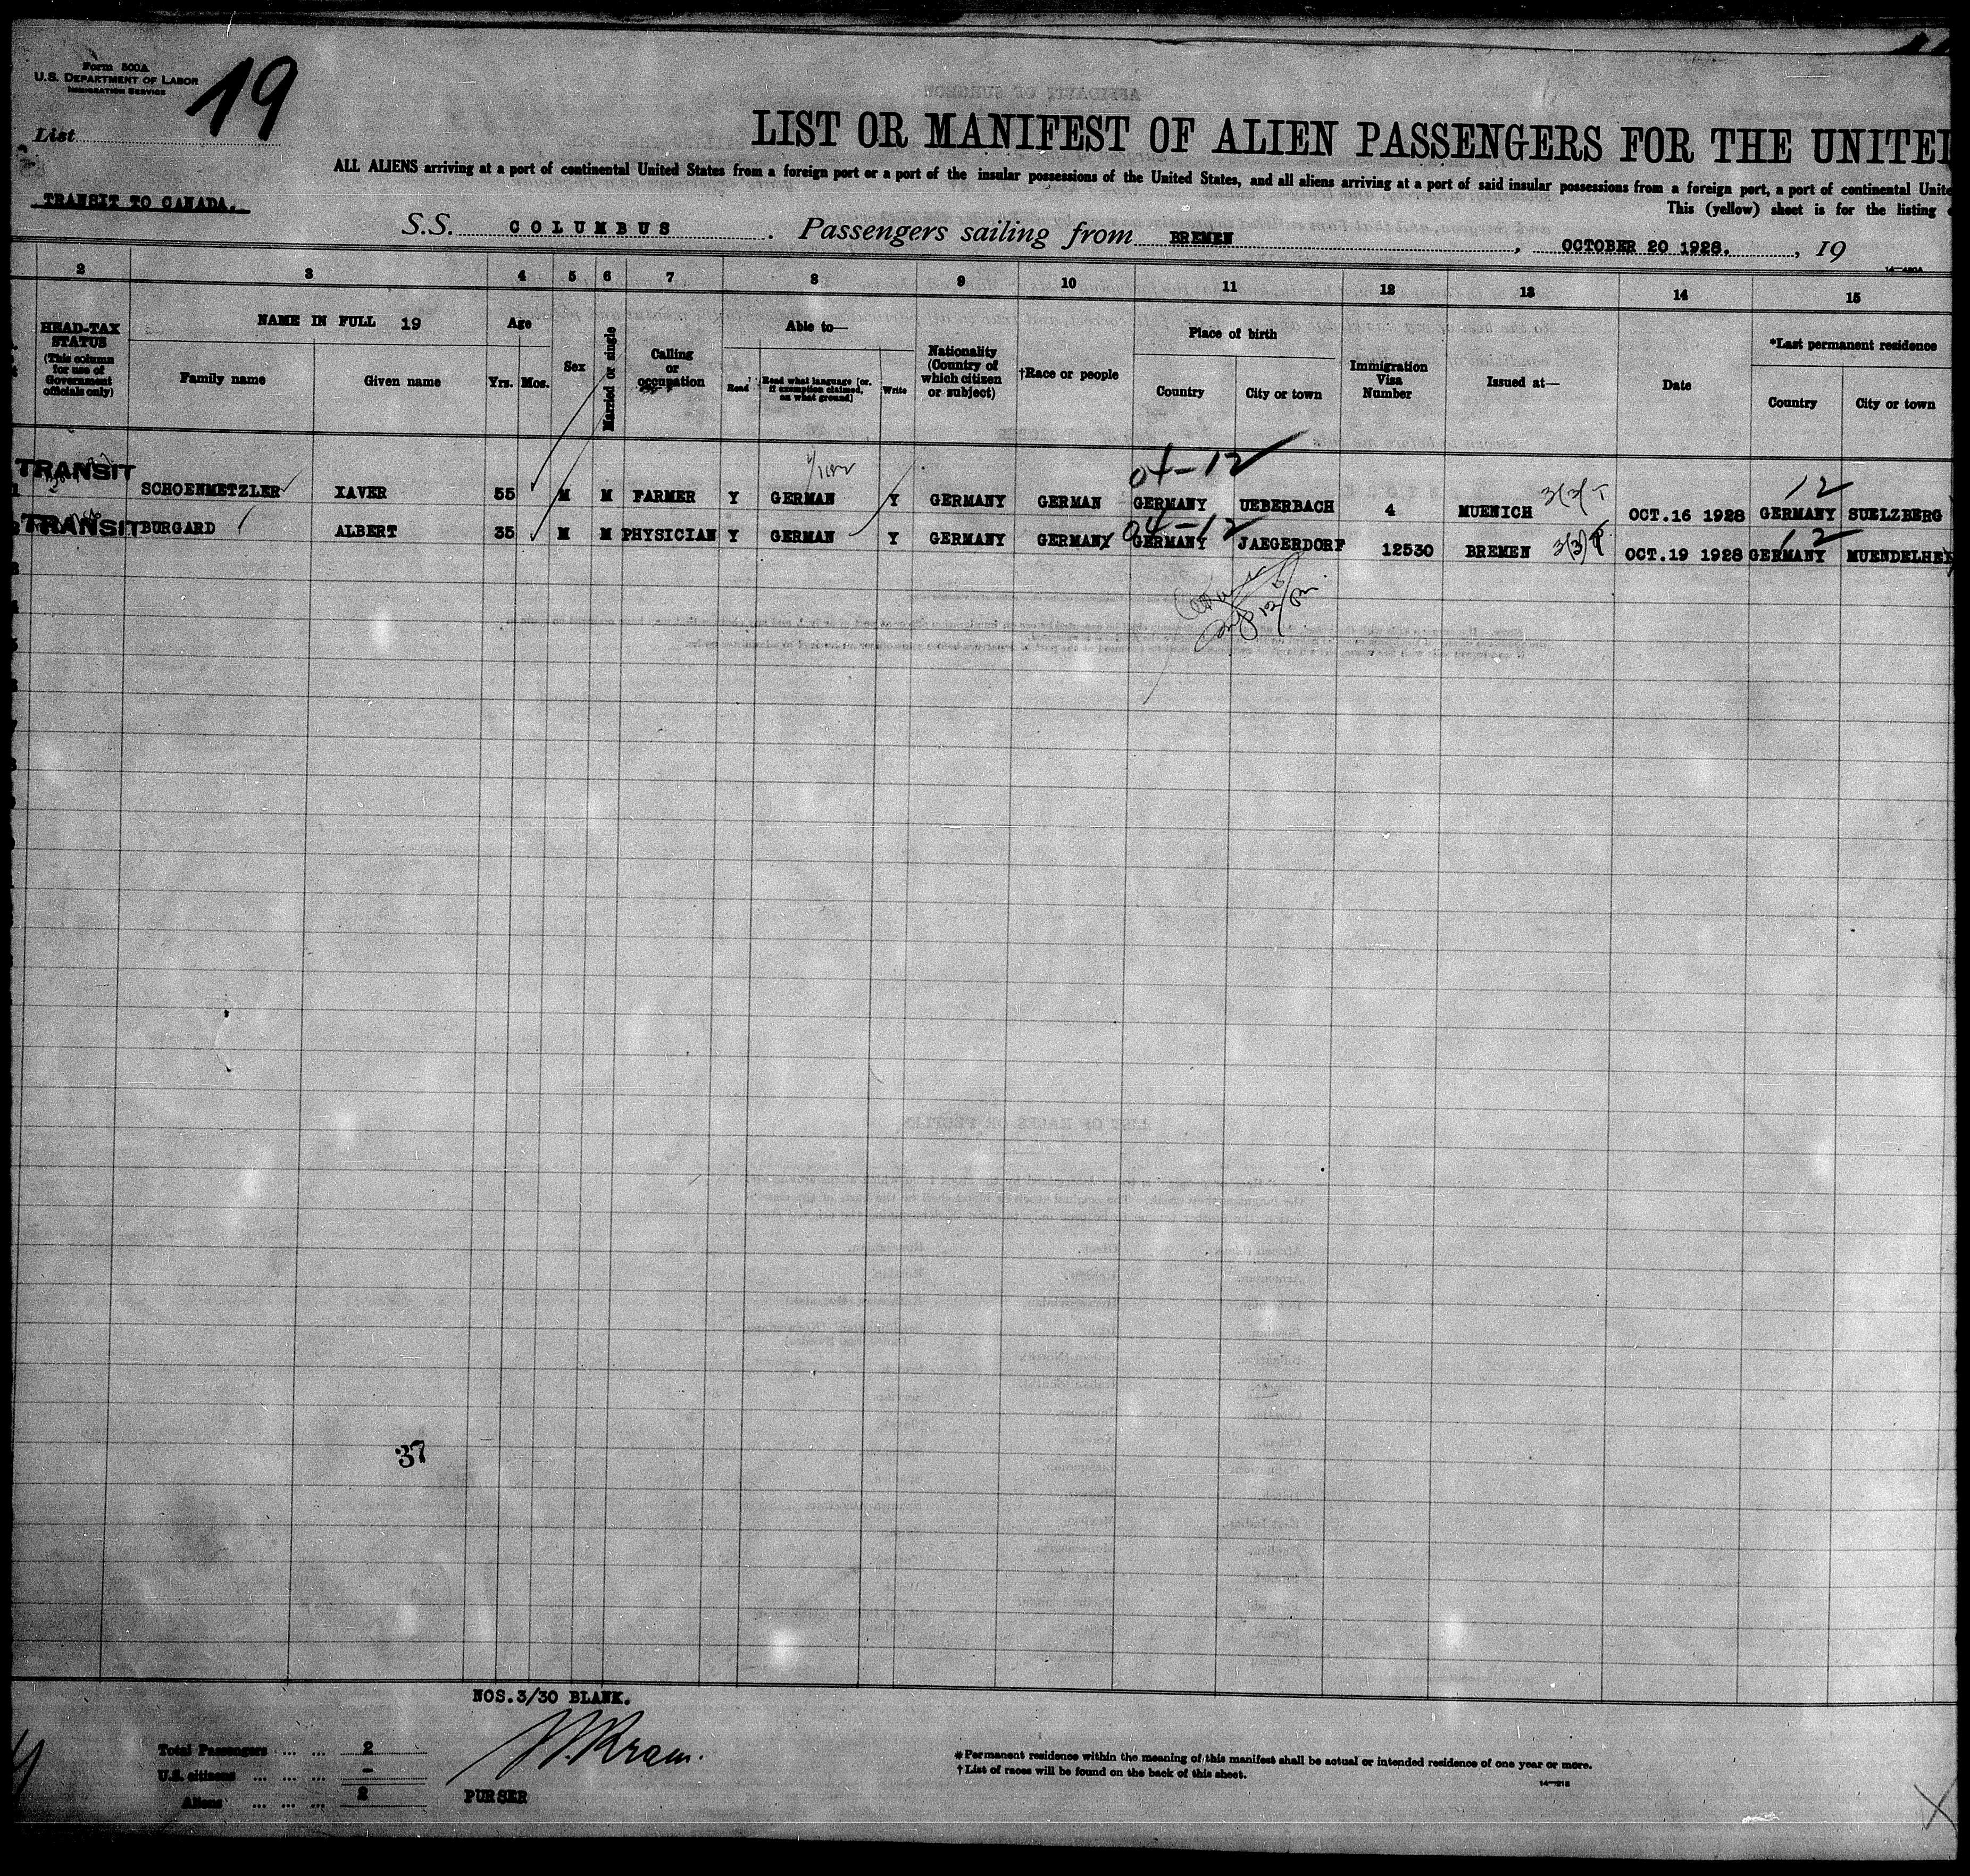 Form 500A
U.S. DEPARTMENT OF LABOR
IMMIGRATION SERVICE
List 19
LIST OR MANIFEST OF ALIEN PASSENGERS FOR THE UNITED
ALL ALIENS arriving at a port of continental United States from a foreign port or a port of the insular possessions of the United States, and all aliens arriving at a port of said insular possessions from a foreign port, a port of continental Unite
TRANSIT TO CANADA.
This (yellow) sheet is for the listing
S.S. COLUMBUS. Passengers sailing from BREMEN, OCTOBER 20 1928., 19
14-480A
2 3 4 5 6 7 8 9 10 11 12 13 14 15
HEAD-TAX STATUS (This column for use of Government officials only)
NAME IN FULL 19
Family name Given name
Age
Yrs. Mos.
Sex
Married or single
Calling or occupation
Able to—
Read Read what language [or, if exemption claimed, on what ground] Write
Nationality (Country of which citizen or subject)
†Race or people
Place of birth
Country City or town
Immigration Visa Number
Issued at—
Date
*Last permanent residence
Country City or town
04-12 12
TRANSIT
1 SCHOENMETZLER XAVER 55 M M FARMER Y GERMAN Y GERMANY GERMAN GERMANY UEBERBACH 4 MUENICH 3(3)T OCT.16 1928 GERMANY SUELZBERG
04-12 12
TRANSIT BURGARD ALBERT 35 M M PHYSICIAN Y GERMAN Y GERMANY GERMANY GERMANY JAEGERDORF 12530 BREMEN 3(3) OCT.19 1928 GERMANY MUENDELHEI
37
NOS.3/30 BLANK.
Total Passengers ... ... 2
U.S. citizens ... ... ... -
Aliens ... ... ... 2
W.Kram.
PURSER
*Permanent residence within the meaning of this manifest shall be actual or intended residence of one year or more.
†List of races will be found on the back of this sheet.